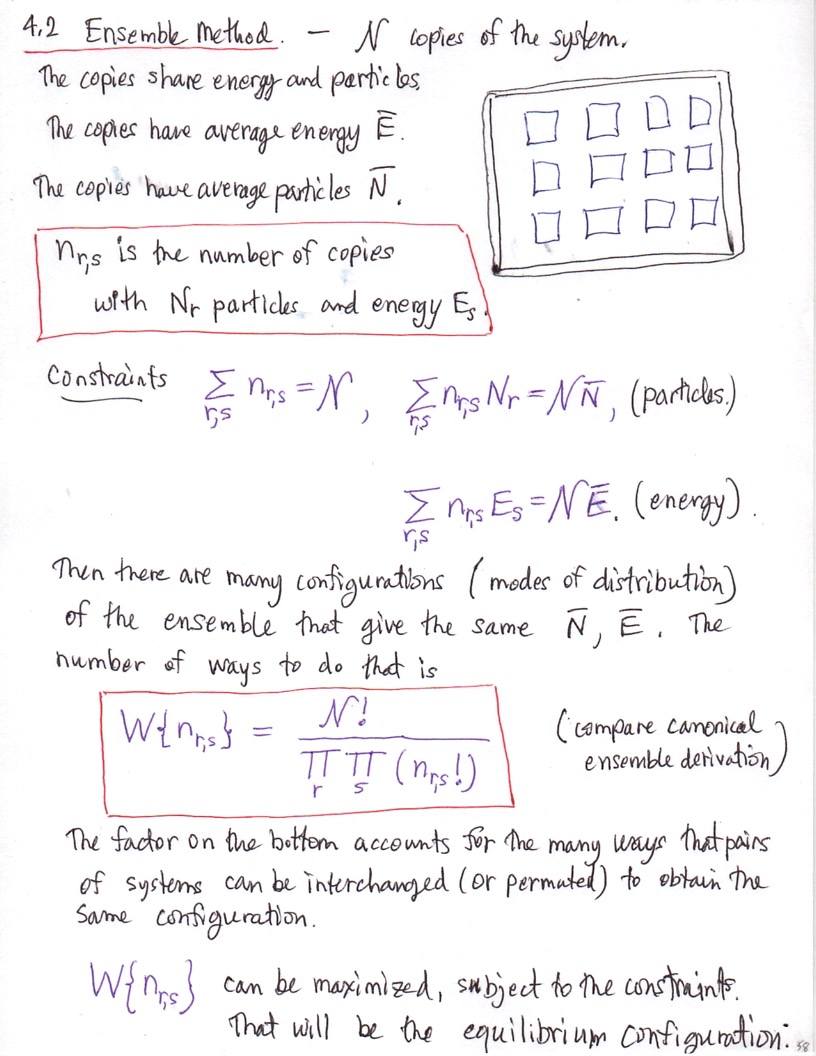 4.2 Ensemble Method. — 𝒩 copies of the system.
The copies share energy and particles.
The copies have average energy E̅.
The copies have average particles N̅.
n_{r,s} is the number of copies
with N_r particles and energy E_s.
Constraints ∑_{r,s} n_{r,s} = 𝒩, ∑_{r,s} n_{r,s} N_r = 𝒩 N̅, (particles.)
∑_{r,s} n_{r,s} E_s = 𝒩 E̅. (energy).
Then there are many configurations (modes of distribution)
of the ensemble that give the same N̅, E̅. The
number of ways to do that is
W{n_{r,s}} = 𝒩! / ∏_r ∏_s (n_{r,s}!)
(compare canonical
ensemble derivation)
The factor on the bottom accounts for the many ways that pairs
of systems can be interchanged (or permuted) to obtain the
same configuration.
W{n_{r,s}} can be maximized, subject to the constraints.
That will be the equilibrium configuration:
58